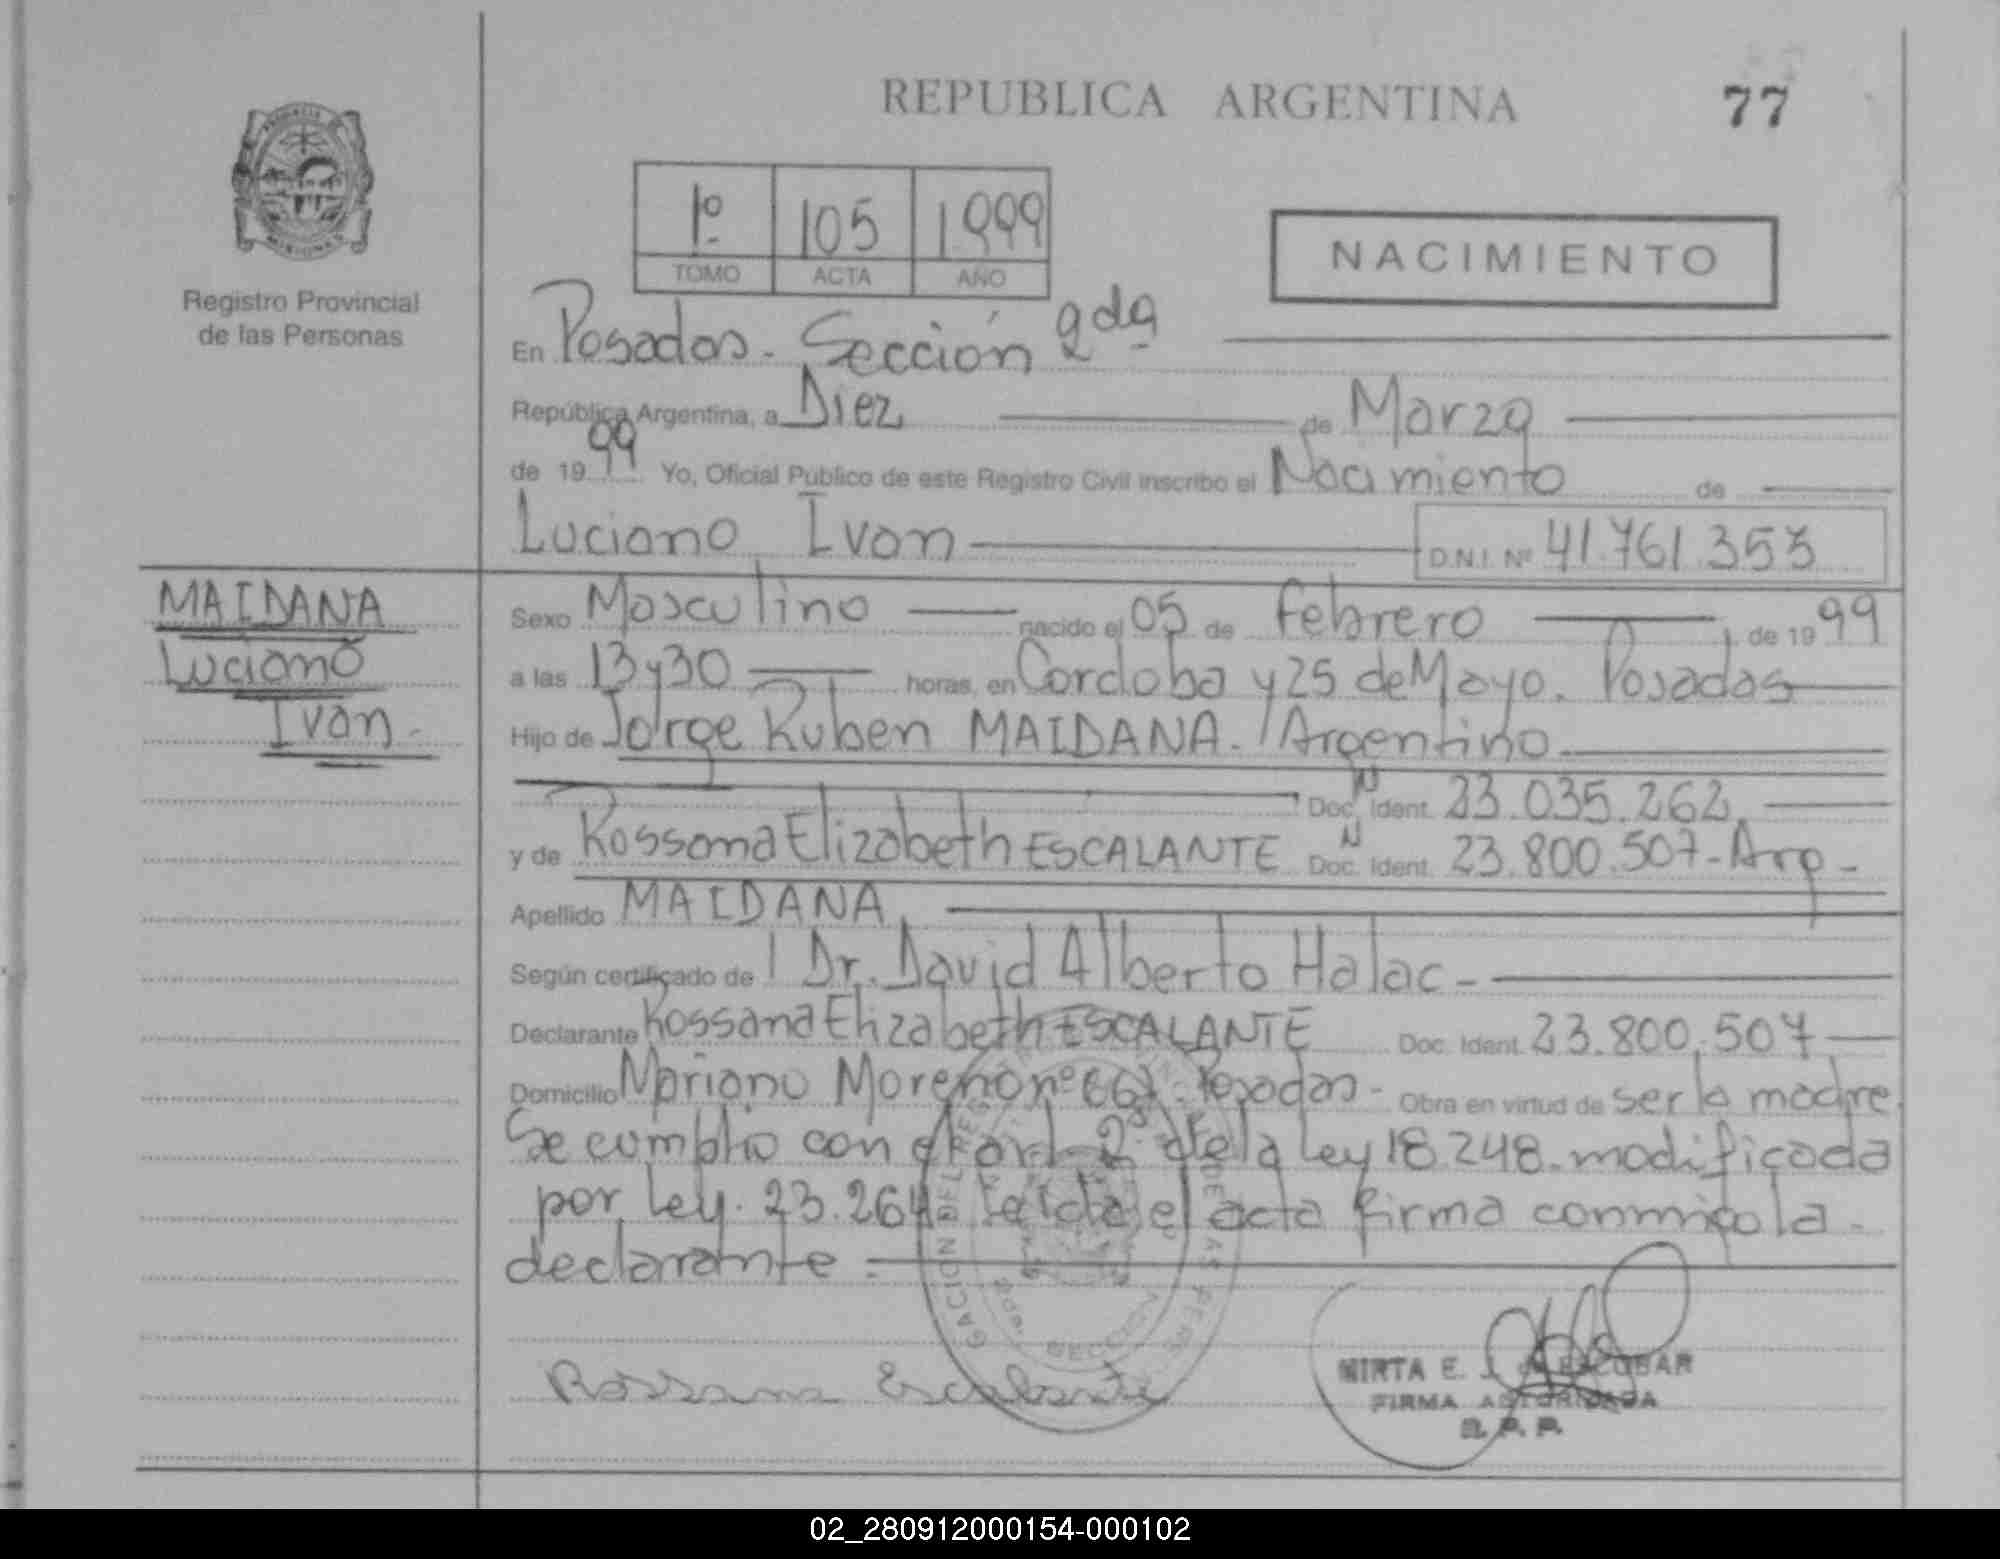 REPUBLICA ARGENTINA 77
1º 105 1999
TOMO ACTA AÑO
NACIMIENTO
Registro Provincial
de las Personas
En Posadas. Sección 2da
República Argentina, a Diez de Marzo
de 1999 Yo, Oficial Público de este Registro Civil inscribo el Nacimiento de
Luciano Ivan D.N.I. Nº 41.761.353
MAIDANA
Luciano
Ivan.-
Sexo Masculino nacido el 05 de Febrero de 1999
a las 13 y 30 horas, en Cordoba y 25 de Mayo. Posadas
Hijo de Jorge Ruben MAIDANA. Argentino
Doc. Ident. 23.035.262
y de Rossana Elizabeth ESCALANTE Doc. Ident. 23.800.507-Arg-
Apellido MAIDANA
Según certificado de Dr. David Alberto Halac-
Declarante Rossana Elizabeth ESCALANTE Doc. Ident. 23.800.507
Domicilio Mariano Moreno nº Posadas- Obra en virtud de ser la madre
Se cumplio con el art. 2º de la Ley 18.248. modificada
por Ley. 23.264 Leída el acta firma conmigo la
declarante
SECCION
Rossana Escalante
MIRTA E. ESCOBAR
FIRMA AUTORIZADA
R. P. P.
02_280912000154-000102